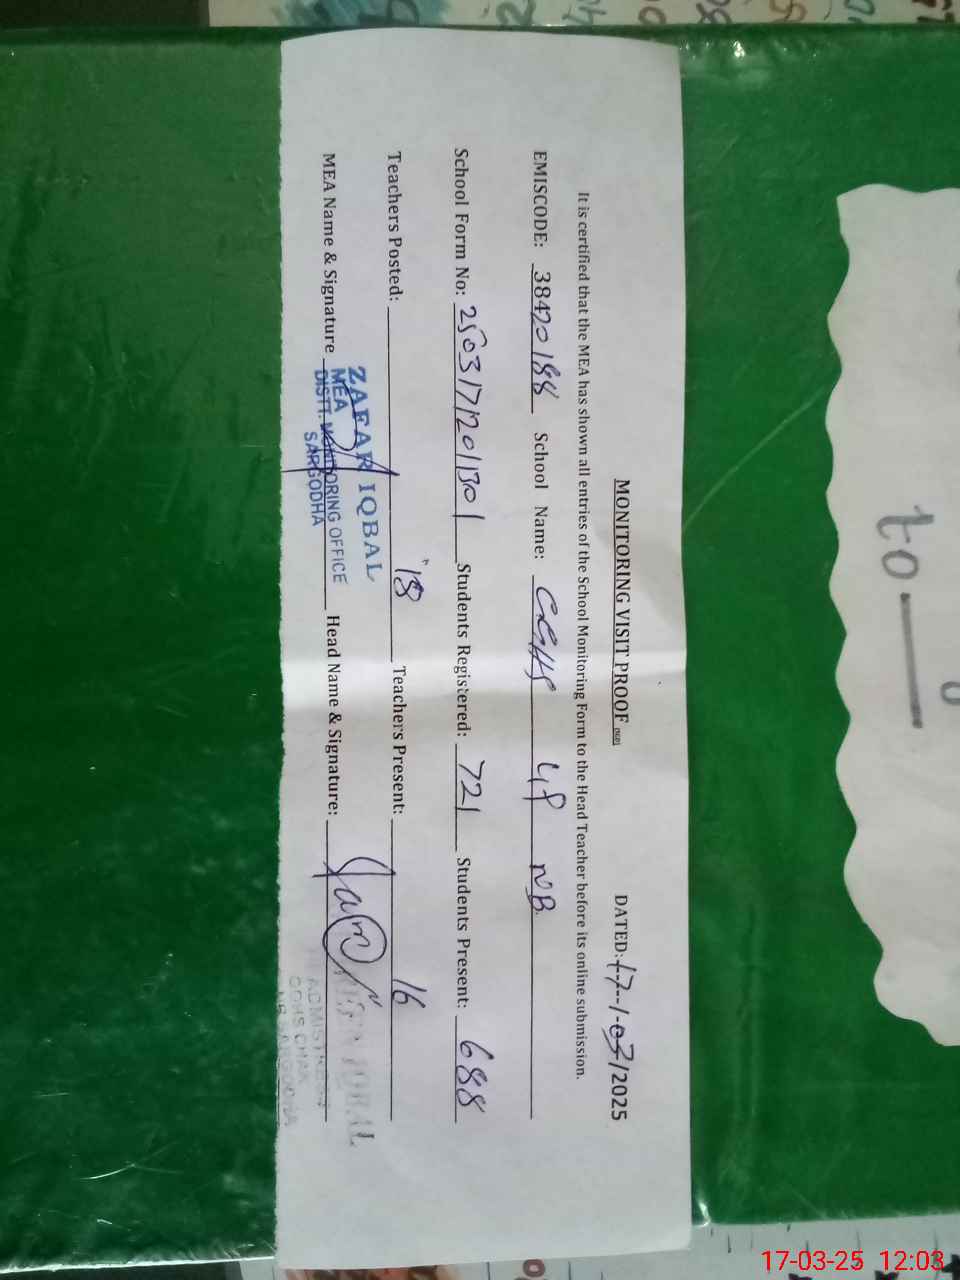 MONITORING VISIT PROOF
DATED: 17-/-03/2025
It is certified that the MEA has shown all entries of the School Monitoring Form to the Head Teacher before its online submission.
EMISCODE: 38420188 School Name: GGHS 48 NB
School Form No: 250317120130 1 Students Registered: 721 Students Present: 688
Teachers Posted: 18 Teachers Present: 16
MEA Name & Signature Head Name & Signature:
ZAFAR IQBAL
MEA
DISTT. MONITORING OFFICE
SARGODHA
IQBAL
CHAK
NB SARGODHA
to
17-03-25 12:03